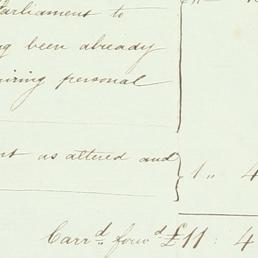 Parliament to
been already
personal
as altered and 1 " 4
Carrd. forwd. £11 : 4